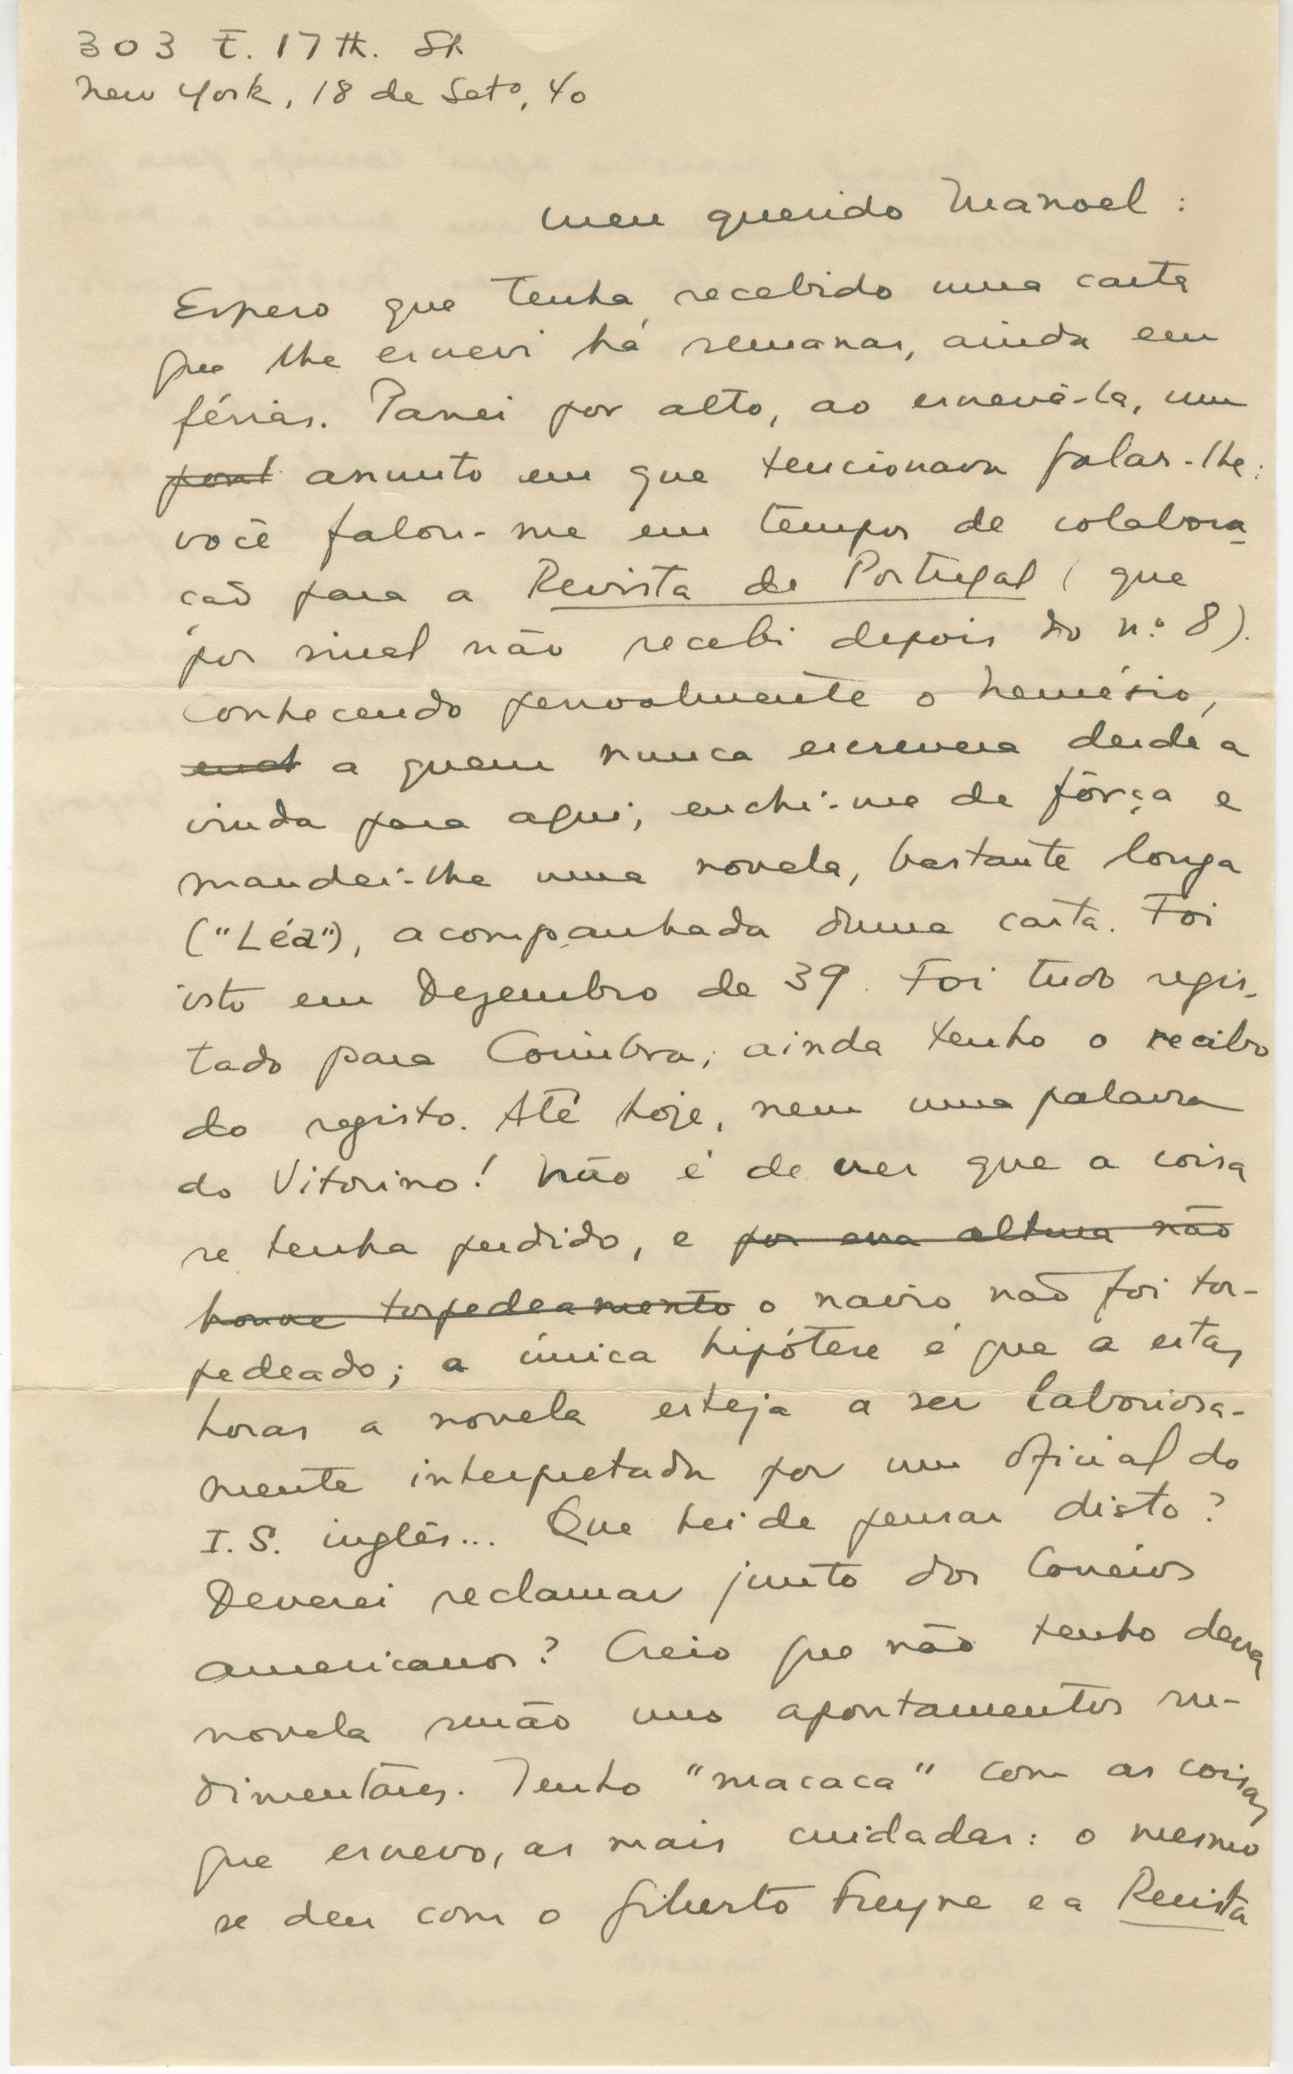 303 E. 17th. St.
New York, 18 de Setº, 40
Meu querido Manoel:
Espero que tenha recebido uma carta
que lhe escrevi há semanas, ainda em
férias. Passei por alto, ao escrevê-la, um
assunto em que tencionava falar-lhe:
você falou-me em tempos de colabora-
ção para a Revista de Portugal (que
por sinal não recebi depois do n.º 8).
Conhecendo pessoalmente o Nemésio,
a quem nunca escrevera desde a
vinda para aqui, enchi-me de fôrça e
mandei-lhe uma novela, bastante longa
("Léa"), acompanhada duma carta. Foi
isto em Dezembro de 39. Foi tudo regis-
tado para Coimbra; ainda tenho o recibo
do registo. Até hoje, nem uma palavra
do Vitorino! Não é de crer que a coisa
se tenha perdido, e por essa altura não
houve torpedeamento o navio não foi tor-
pedeado; a única hipótese é que a estas
horas a novela esteja a ser laboriosa-
mente interpretada por um oficial do
I.S. inglês... Que hei de pensar disto?
Deverei reclamar junto dos Correios
americanos? Creio que não tenho dessa
novela senão uns apontamentos ru-
dimentares. Tenho "macaca" com as coisas
que escrevo, as mais cuidadas: o mesmo
se deu com o Gilberto Freyre e a Revista